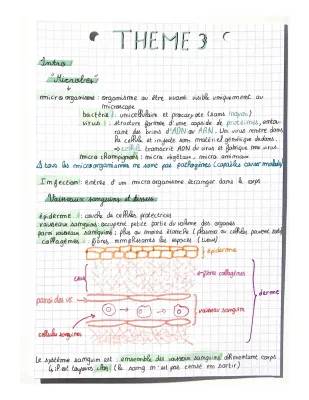 THEME 3
Intro
"Microbes"
micro organisme : organisme ou être vivant visible uniquement au
microscope
bactérie : unicellulaire et procaryote (sans noyau)
virus : structure formée d'une capside de protéines, entou-
rant des brins d'ADN ou ARN. Un virus rentre dans
la cellule et injecte son matériel génétique dedans.
→ cellule transcrit ADN du virus et fabrique new virus.
micro champignons : micro végétaux, micro animaux
⚠ tous les microorganismes ne sont pas pathogènes (capables causer maladie)
Infection : entrée d'un micro organisme étranger dans le corps
Vaisseaux sanguins et tissus
épiderme : couche de cellules protectrices
vaisseaux sanguins : occupent petite partie du volume des organes
paroi vaisseaux sanguins : plus ou moins étanche (plasma ou cellules peuvent sortir)
collagènes : fibres remplissants les espaces (tissu)
épiderme
tissu
fibres collagènes
derme
paroi des vs
vaisseau sanguin
cellules sanguines
Le système sanguin est : ensemble des vaisseaux sanguins alimentant corps
↳ il est toujours clos (le sang n'est pas censé en sortir)